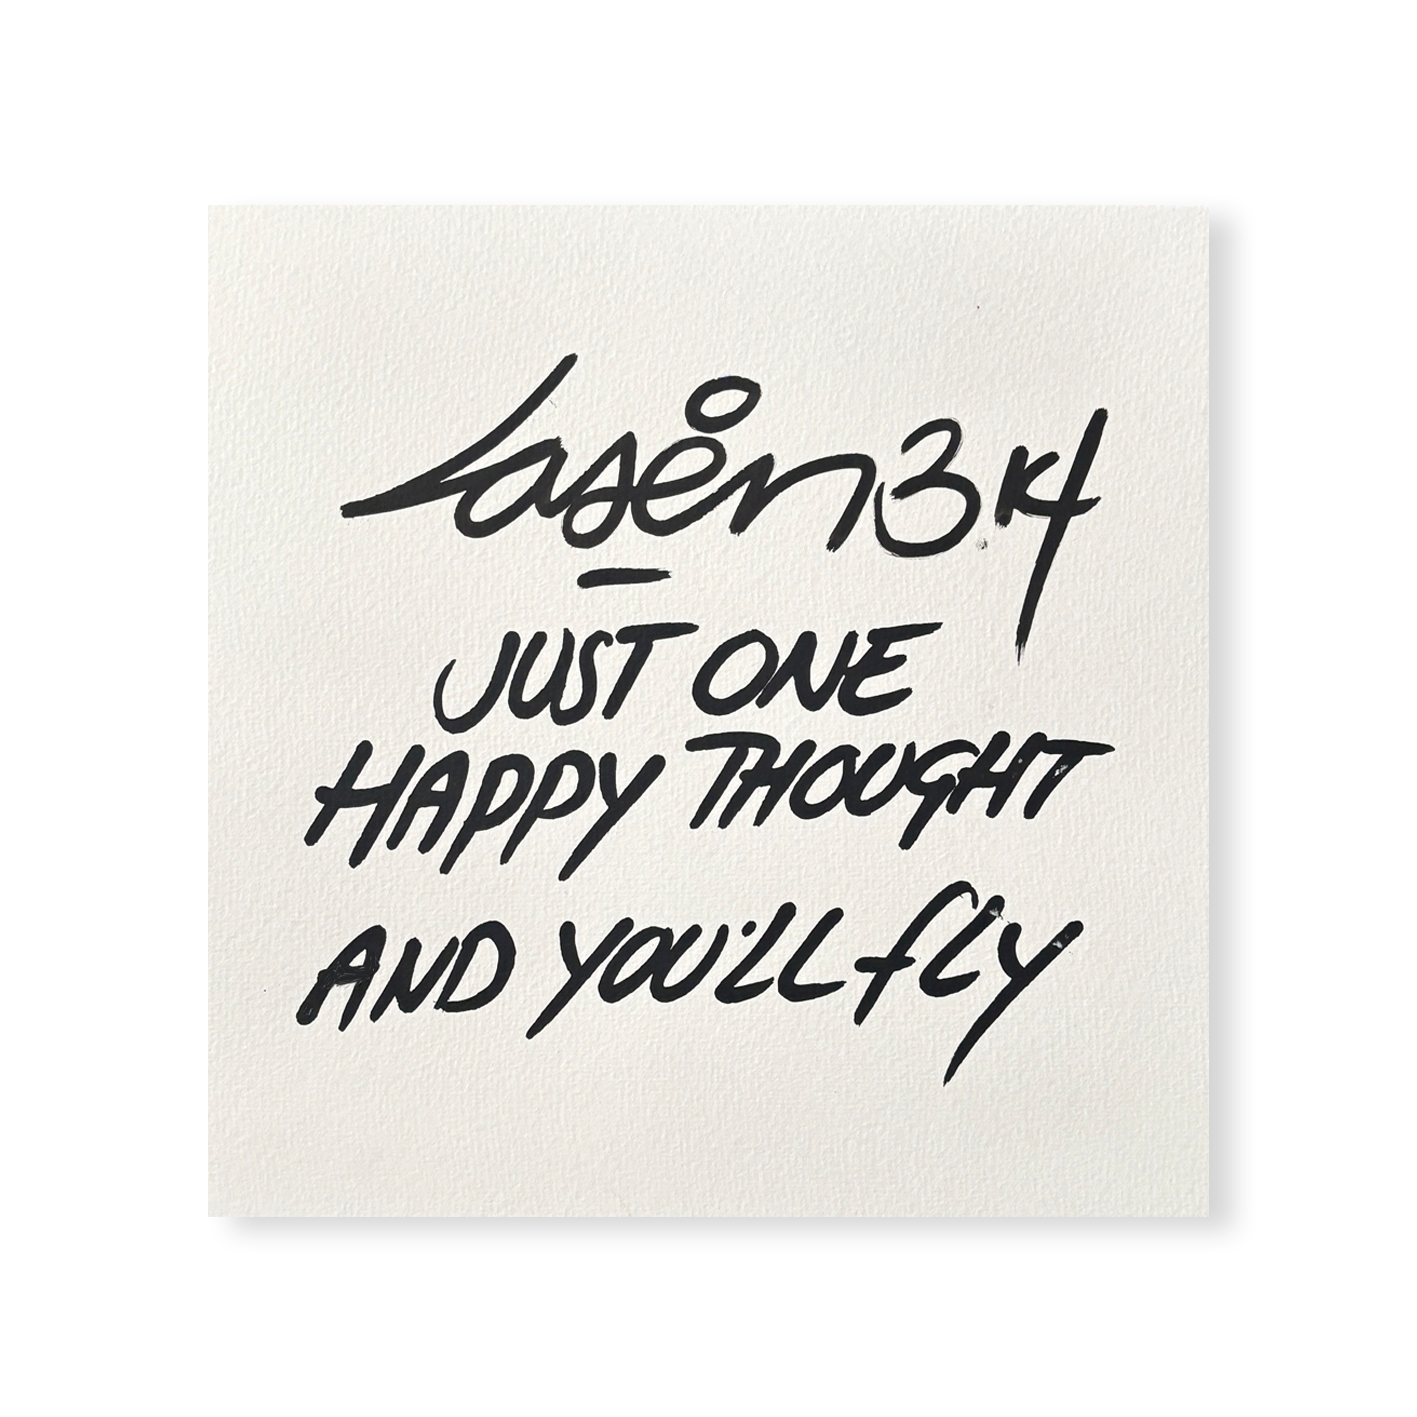 Laser 3.14
–
JUST ONE
HAPPY THOUGHT
AND YOU'LL fLy